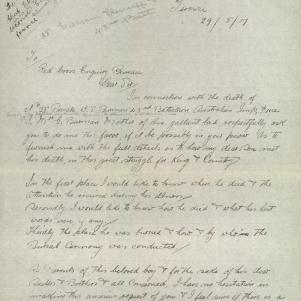 29/8/17
To
Red Cross Enquiry Bureau
Dear Sir
In connection with the death of
Private 43rd Battalion Australian
Mother of this gallant lad, respectfully ask
you to do me this favor, if it be possibly in your power to
furnish me with the full details, as to how my dear Son met
his death, in this great struggle for King & Country
In the first place I would like to know when he died & the
attention he received during his illness
Secondly I would like to know how he died & what his last
words were if any
Thirdly the place he was buried & how & by whom the
Burial Ceremony was conducted
As Parents of this beloved boy & for the sake of his dear
Sisters & Brothers & all concerned, I have no hesitation in
making this request of you & I feel sure if there is a